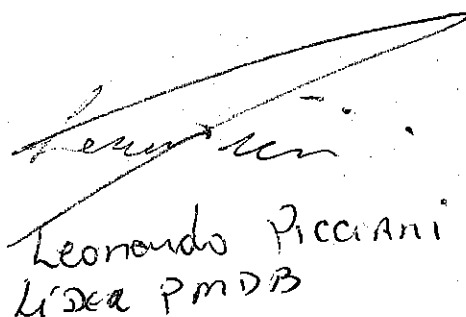 Leonardo Picciani
Líder PMDB